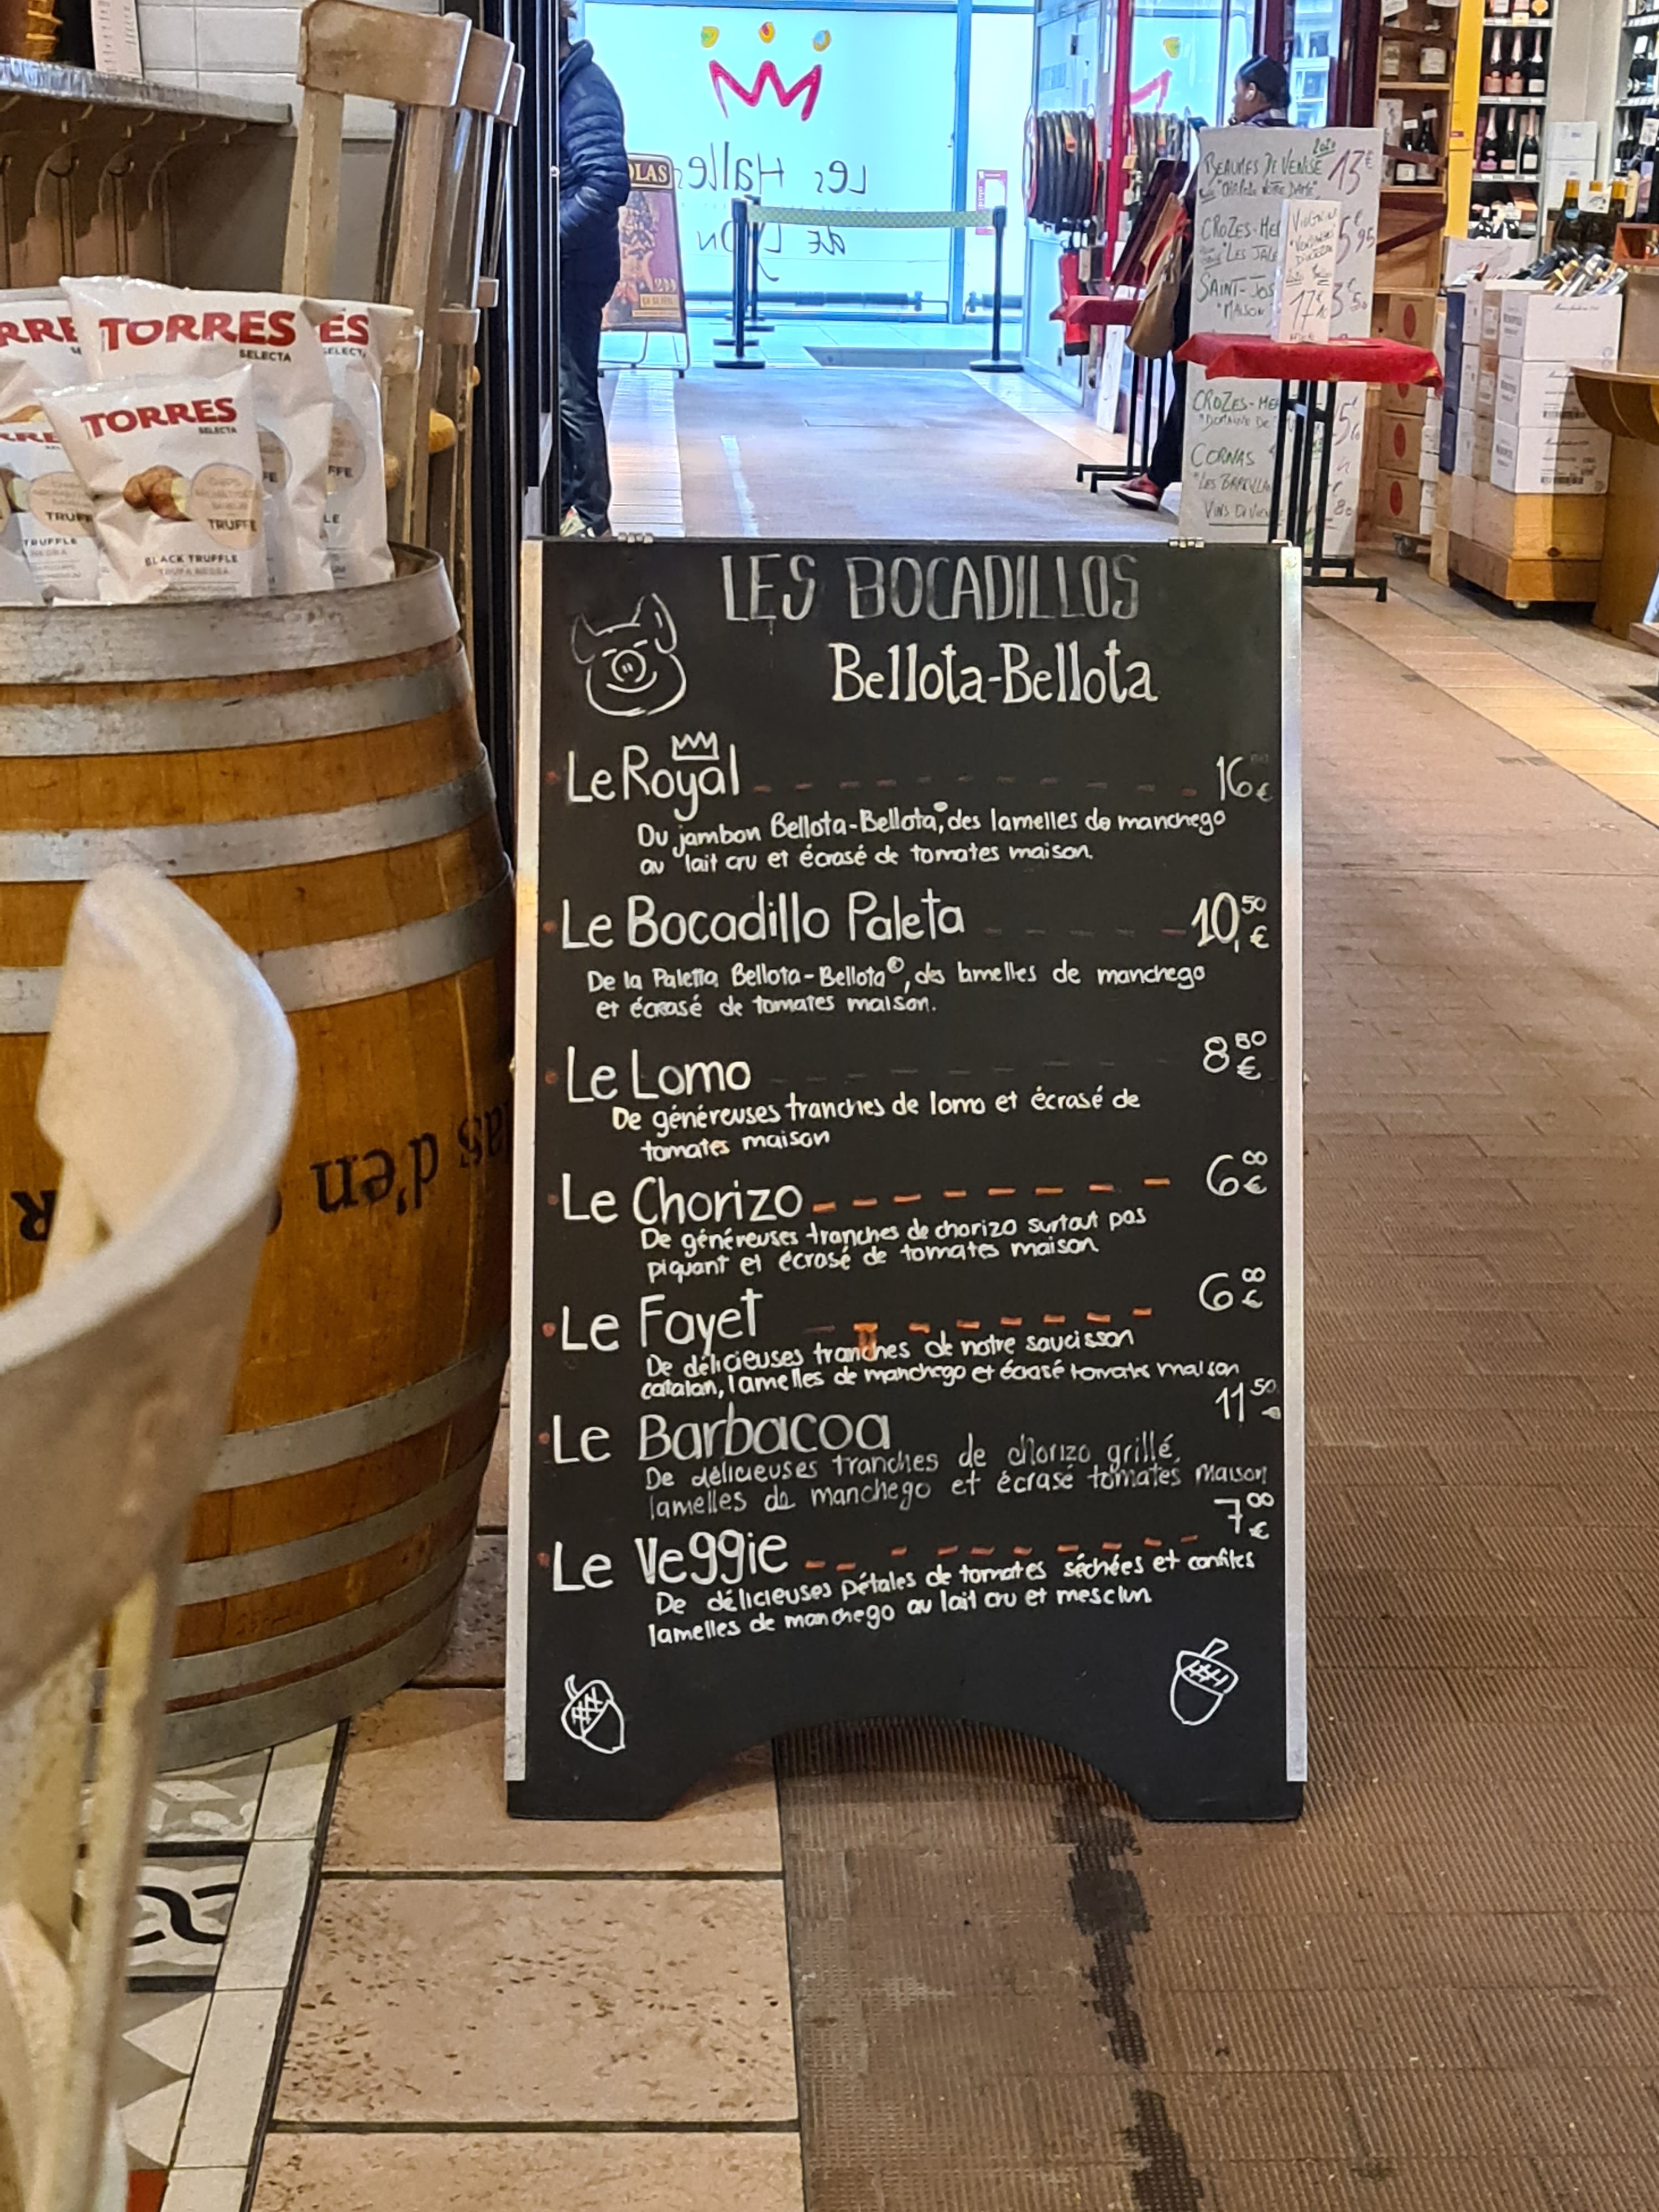 Les Halles
de Lyon
TORRES
SELECTA
TORRES
SELECTA
TRUFFE
BLACK TRUFFLE
BEAUMES DE VENISE 13€
CORNAS
LES BOCADILLOS
Bellota-Bellota
Le Royal 16€
Du jambon Bellota-Bellota, des lamelles de manchego
au lait cru et écrasé de tomates maison.
Le Bocadillo Paleta 10,50€
De la Paletta Bellota-Bellota©, des lamelles de manchego
et écrasé de tomates maison.
Le Lomo 8€
De généreuses tranches de lomo et écrasé de
tomates maison
Le Chorizo 6€00
De généreuses tranches de chorizo surtout pas
piquant et écrasé de tomates maison
Le Foyet 6€00
De délicieuses tranches de notre saucisson
catalan, lamelles de manchego et écrasé tomates maison
Le Barbacoa 11 50
De délicieuses tranches de chorizo grillé,
lamelles de manchego et écrasé tomates maison
Le Veggie 7€00
De délicieuses pétales de tomates séchées et confites
lamelles de manchego au lait cru et mesclun
d'en